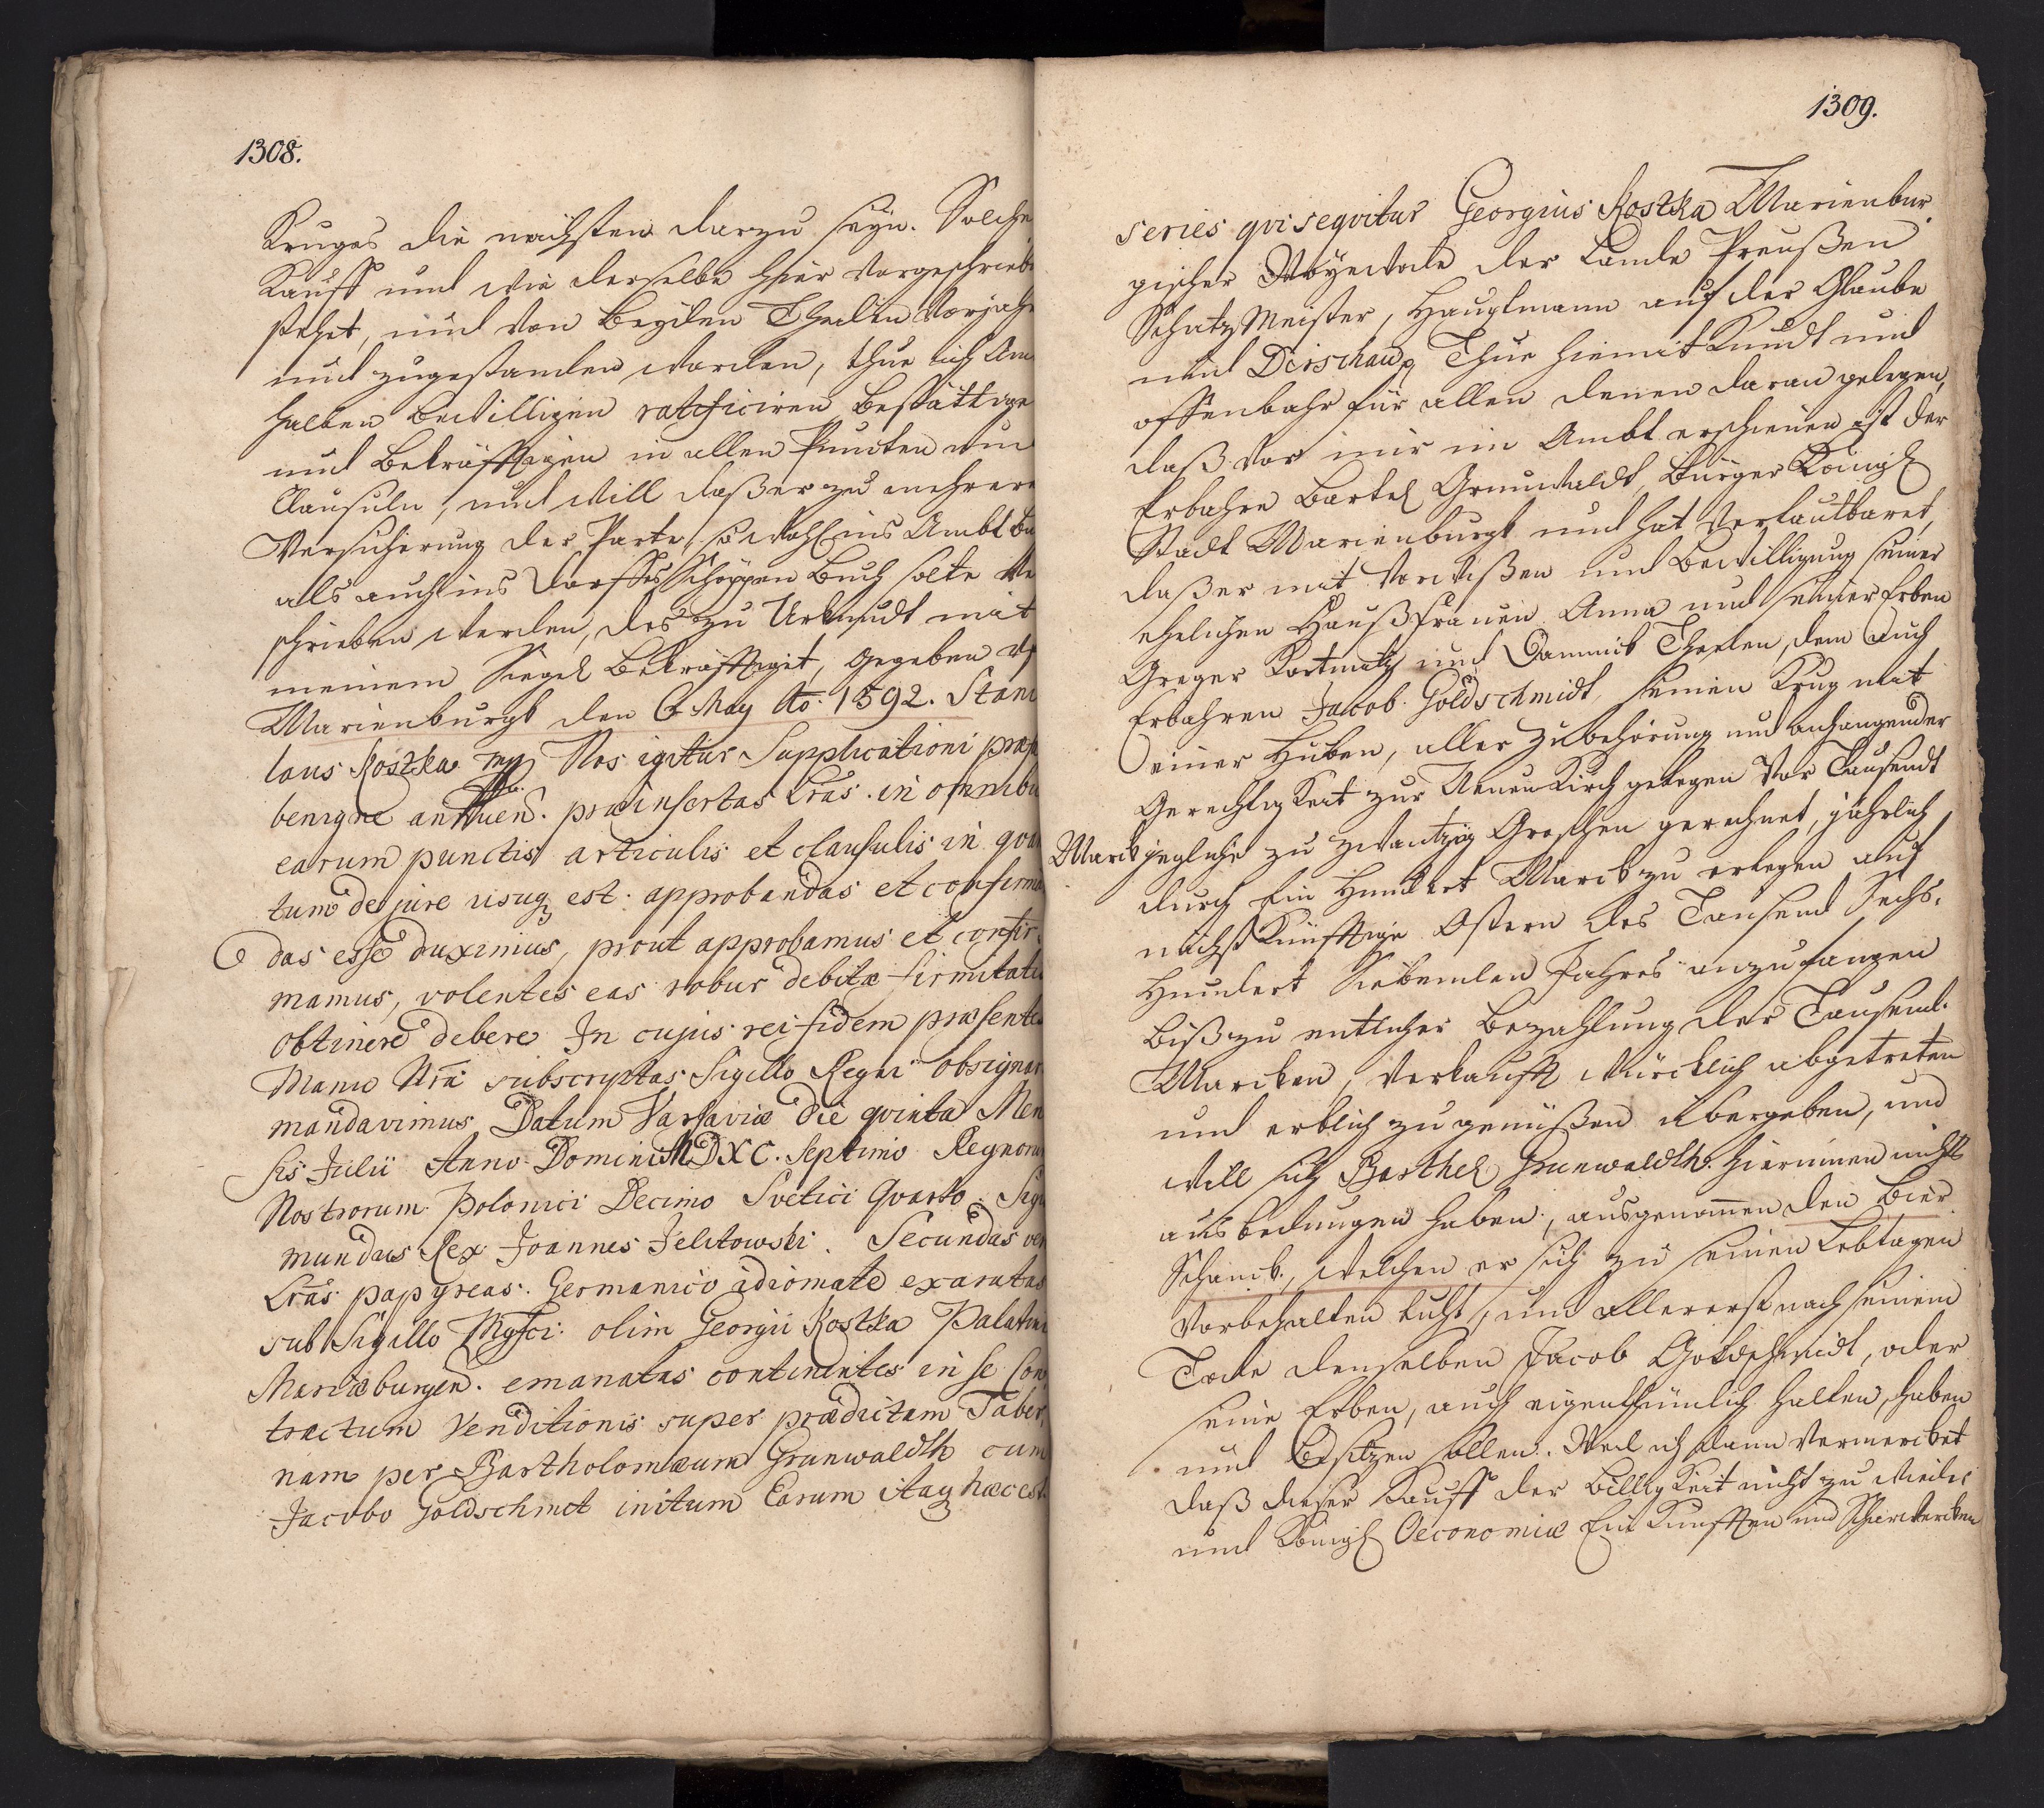 1308.
Kruges die nächsten darzu seyn. Solche
Kauff und wie derselbe hier vorgeschrieb
stehet, und von beyden Theilen Vorjah
und zugestanden worden, thue ich Am
halben bewilligen ratificiren bestättige
und bekräfftigen in allen Puncten un
Clausuln, und will daß er zu mehrere
Versicherung der Parte, so wohl ins Ambt Bu
als auch ins Dorffes Schöppen Buch solte Ve
schrieben werden, des zu Urkundt mit
meinem Siegel bekräfftiget, gegeben
Marienburgk den 6 May Ao. 1592. Stani
laus Kostka mp Nos igitur Supplicationi præf
benigne annuen. præinsertas Lras. in omnibu
earum punctis articulis et clausulis in qvan
tum de jure usuq est. approbandas et confirma
das esse duximus, prout approbamus et confir-
mamus, volentes eas robur debitæ firmitati
obtinere debere In cujus rei fidem præsente
Manu Nra subscryptas Sigillo Regni obsignar
mandavimus Datum Varsaviæ Die qvinta Men
sis Julii Anno Domini MDXC. Septimo Regnoru
Nostrorum Polonici Decimo Svetici Qvarto. Sigis
mundus Rex Joannes Jelitowski. Secundas ver
Lras papyreas. Germanico idiomate exaratas
sub Sigillo Mgfci olim Georgii Kostka Palatini
Mariæburgen. emanatas continentes in se Con
tractum Venditionis super prædictam Taber,
nam per Bartholomæum Grunwaldth cum
Jacobo Goldschmet initum Earum itaq hæc est
1309.
series qvi seqvitur Georgius Kostka Marienbur
gischer Woyewode der Lande Preußen
Schatz Meister, Hauptmann auf der Glaube
und Dirschau, Thue hiemit Kundt und
offenbahr für allen denen daran gelegen,
daß vor mir im Ambt erschienen ist der
Erbahre Bartel Grunwaldt, Bürger Königl
Stadt Marienburgk und hat Verlautbaret,
daß er mit Vorwißen und Bewilligung seiner
ehelichen Haußfrauen Anna und seiner Erben
Greger und Theilen, dem auch
Erbahren Jacob Goldschmidt seinen Krug mit
einer Huben, aller Zubehörung und anhangender
Gerechtigkeit zur Neuen Kirch gelegen vor Tausendt
Marck jegliche zu zwantzig Groschen gerechnet, jährlich
durch Ein Hundert Marck zu erlegen auf
nächst Künfftige Ostern des Tausend Sechs.
Hundert Siebenden Jahres anzufangen
biß zu entlicher Bezahlung der Tausend.
Marcken, Verkaufft würcklich abgetreten
und erblich zu genüßen übergeben, und
will sich Barthel Grunwaldth hierinnen nichts
ausbedungen haben, ausgenom̅en den Bier
Schanck, welchen er sich zu seinen Lebtagen
Vorbehalten tuht, und allererst nach seinem
Tode denselben Jacob Goldschmidt, oder
seine Erben, auch eigenthümlich halten, haben
und besitzen sollen. Weil ich dann vermercket
daß dieser Kauff der Billigkeit nicht zu wieder
und Königl Oeconomiæ Ein Kunfften und Scharwercken